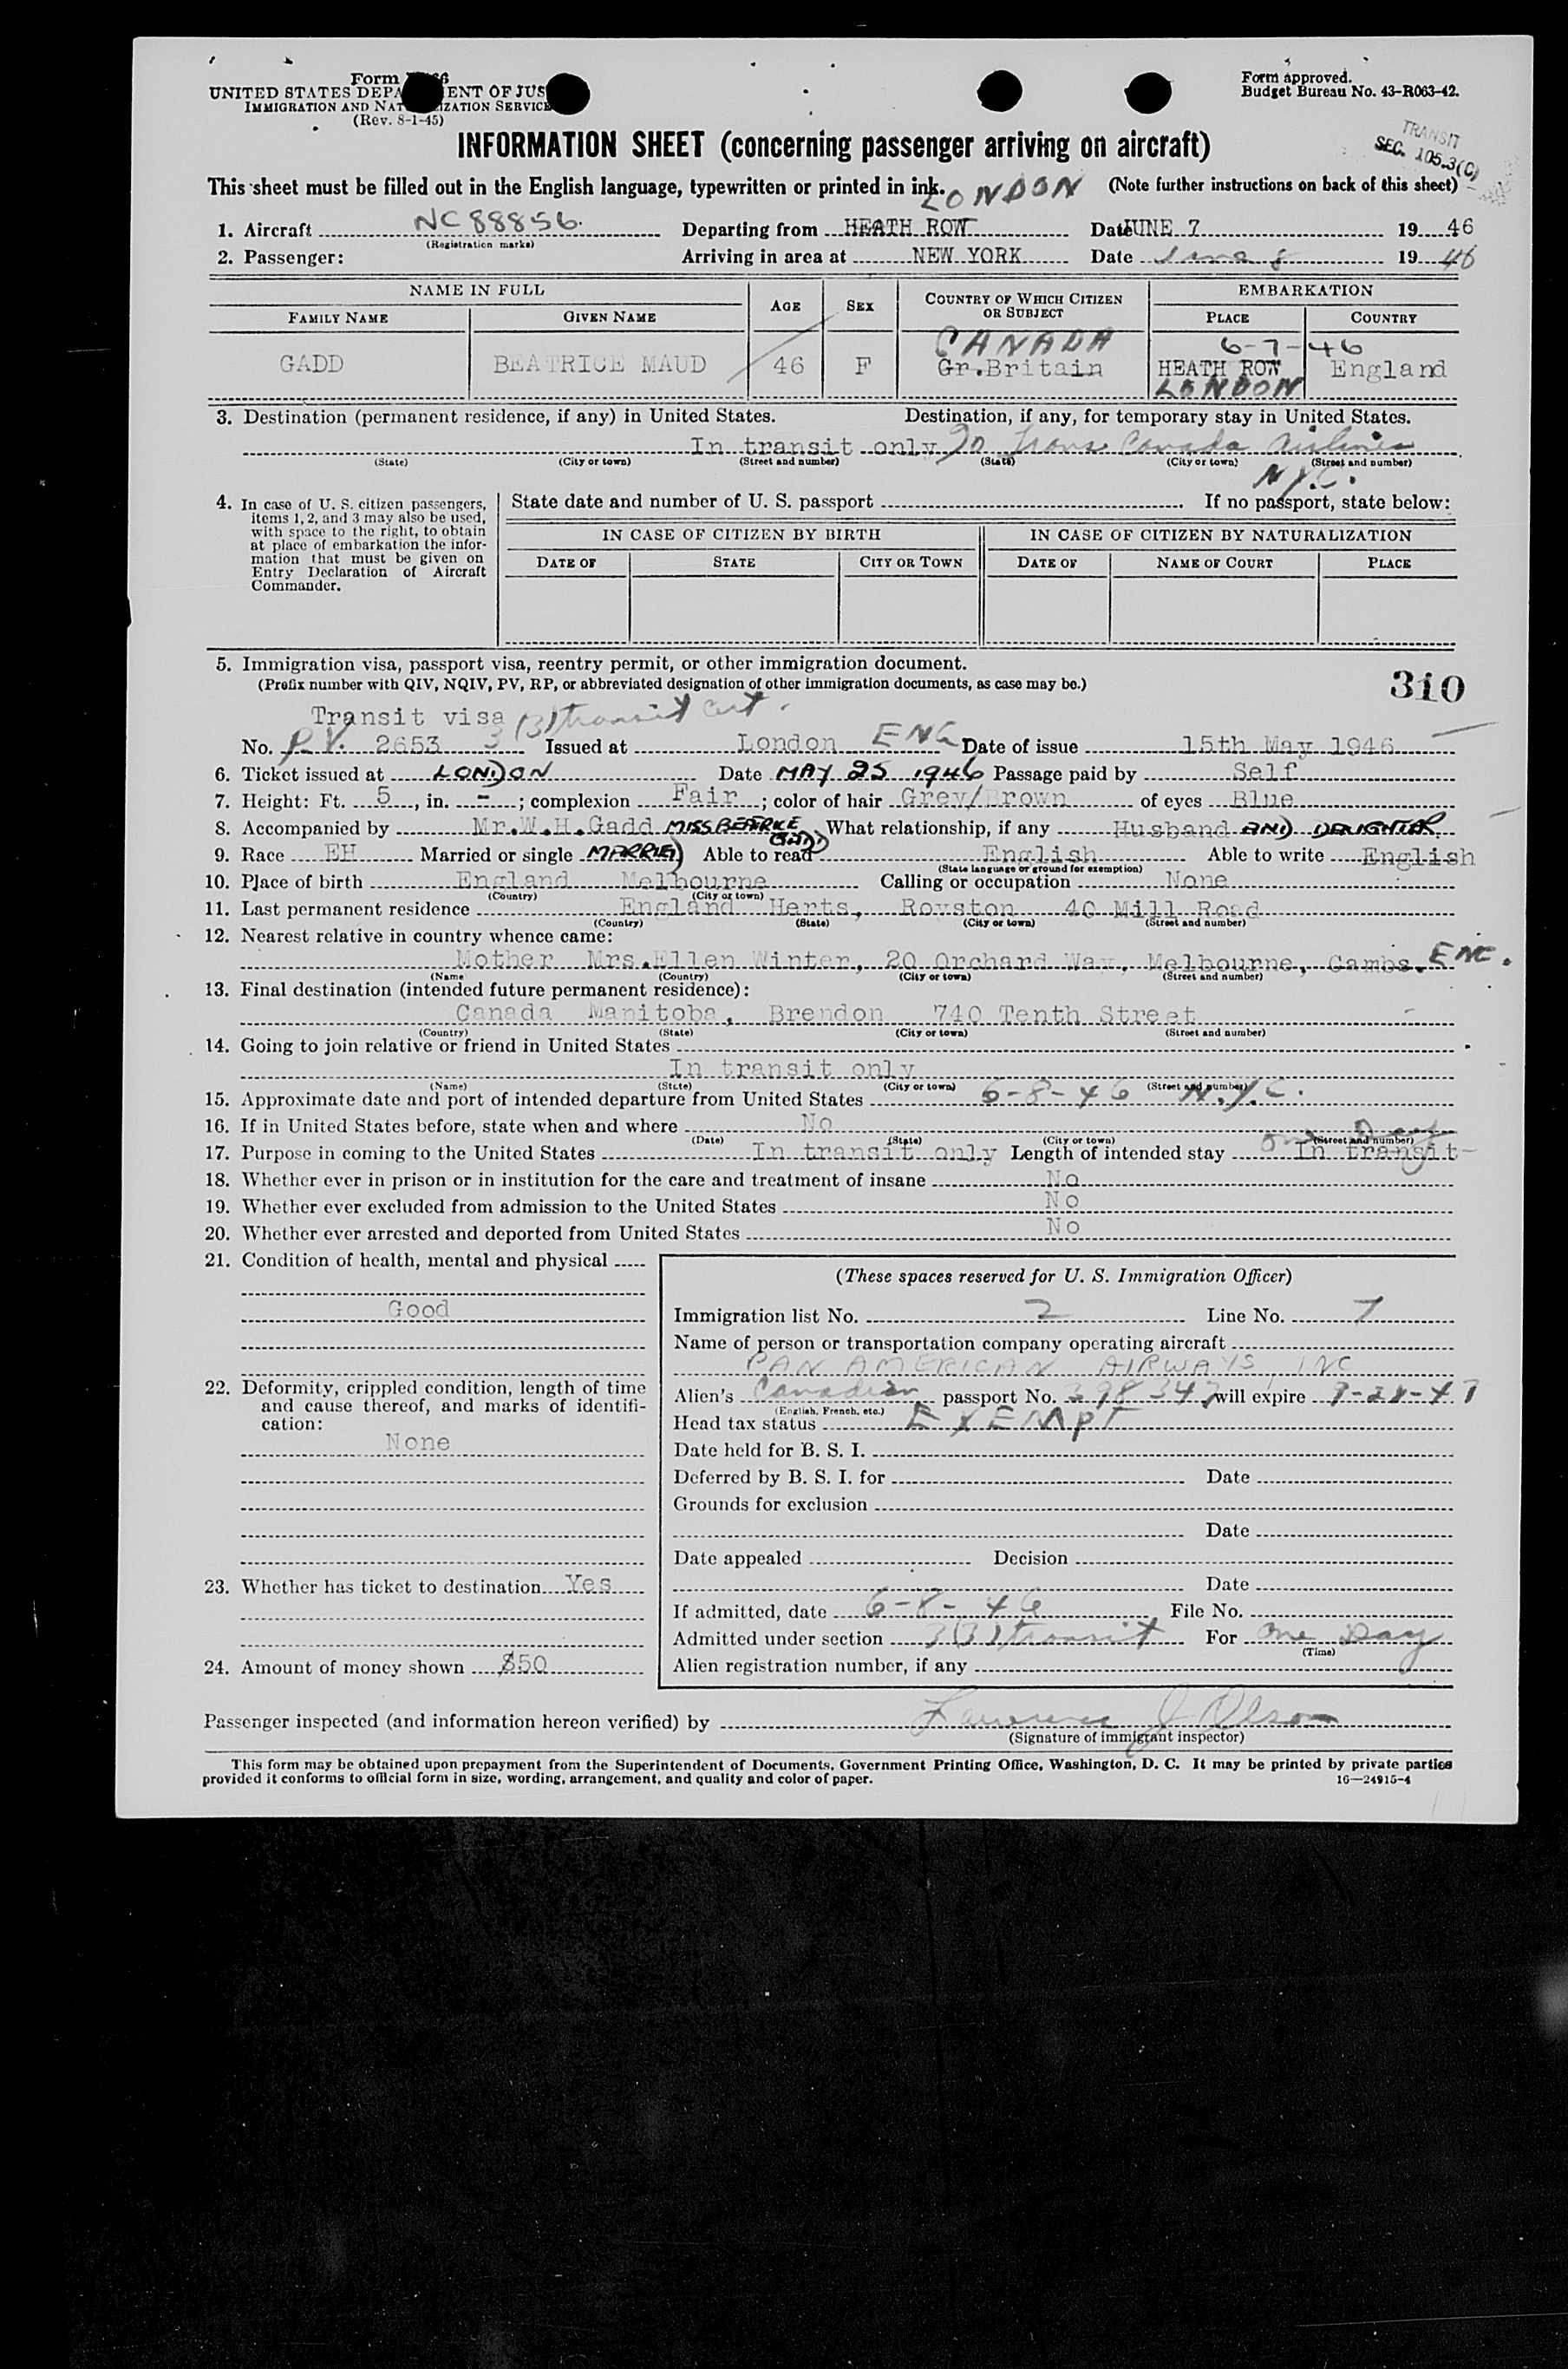 Form
UNITED STATES DEPA ENT OF JUS
IMMIGRATION AND NAT IZATION SERVICE
(Rev. 8-1-45)
Form approved.
Budget Bureau No. 43-R063-42.
INFORMATION SHEET (concerning passenger arriving on aircraft)
TRANSIT
SEC. 105.3(C)
This sheet must be filled out in the English language, typewritten or printed in ink. LONDON (Note further instructions on back of this sheet)
1. Aircraft NC 88856 Departing from HEATH ROW Date JUNE 7 1946
(Registration marks)
2. Passenger: Arriving in area at NEW YORK Date June 8 1946
NAME IN FULL AGE SEX COUNTRY OF WHICH CITIZEN OR SUBJECT EMBARKATION
FAMILY NAME GIVEN NAME PLACE COUNTRY
CANADA 6-7-46
GADD BEATRICE MAUD 46 F Gr.Britain HEATH ROW England
LONDON
3. Destination (permanent residence, if any) in United States. Destination, if any, for temporary stay in United States.
In transit only Trans Canada Airlines
(State) (City or town) (Street and number) (State) (City or town) (Street and number)
N.Y.C.
4. In case of U. S. citizen passengers, items 1, 2, and 3 may also be used, with space to the right, to obtain at place of embarkation the information that must be given on Entry Declaration of Aircraft Commander.
State date and number of U. S. passport If no passport, state below:
IN CASE OF CITIZEN BY BIRTH IN CASE OF CITIZEN BY NATURALIZATION
DATE OF STATE CITY OR TOWN DATE OF NAME OF COURT PLACE
5. Immigration visa, passport visa, reentry permit, or other immigration document.
(Prefix number with QIV, NQIV, PV, RP, or abbreviated designation of other immigration documents, as case may be.)
310
Transit visa 3(3) transit cert.
No. P.V. 2653 Issued at London ENG Date of issue 15th May 1946
6. Ticket issued at LONDON Date MAY 25 1946 Passage paid by Self
7. Height: Ft. 5, in. -; complexion Fair; color of hair Grey/Brown of eyes Blue
8. Accompanied by Mr.W.H.Gadd MISS BEATRICE GADD What relationship, if any Husband AND DAUGHTER
9. Race EH Married or single MARRIED Able to read English Able to write English
(State language or ground for exemption)
10. Place of birth England Melbourne Calling or occupation None
(Country) (City or town)
11. Last permanent residence England Herts, Royston 40 Mill Road
(Country) (State) (City or town) (Street and number)
12. Nearest relative in country whence came:
Mother Mrs.Ellen Winter, 20 Orchard Way, Melbourne, Cambs. ENG.
(Name (Country) (City or town) (Street and number)
13. Final destination (intended future permanent residence):
Canada Manitoba, Brendon 740 Tenth Street
(Country) (State) (City or town) (Street and number)
14. Going to join relative or friend in United States
In transit only
(Name) (State) (City or town) (Street and number)
15. Approximate date and port of intended departure from United States 6-8-46 N.Y.C.
16. If in United States before, state when and where No
(Date) (State) (City or town) (Street and number)
17. Purpose in coming to the United States In transit only Length of intended stay One Day In transit
18. Whether ever in prison or in institution for the care and treatment of insane No
19. Whether ever excluded from admission to the United States No
20. Whether ever arrested and deported from United States No
21. Condition of health, mental and physical
Good
22. Deformity, crippled condition, length of time and cause thereof, and marks of identification:
None
23. Whether has ticket to destination Yes
24. Amount of money shown $50
(These spaces reserved for U. S. Immigration Officer)
Immigration list No. 2 Line No. 7
Name of person or transportation company operating aircraft
PAN AMERICAN AIRWAYS INC
Alien's Canadian passport No. will expire
(English, French, etc.)
Head tax status EXEMPT
Date held for B. S. I.
Deferred by B. S. I. for Date
Grounds for exclusion
Date
Date appealed Decision
Date
If admitted, date 6-8-46 File No.
Admitted under section 3(3) transit For One Day
(Time)
Alien registration number, if any
Passenger inspected (and information hereon verified) by Lawrence J Olson
(Signature of immigrant inspector)
This form may be obtained upon prepayment from the Superintendent of Documents, Government Printing Office, Washington, D. C. It may be printed by private parties
provided it conforms to official form in size, wording, arrangement, and quality and color of paper. 16—24915-4